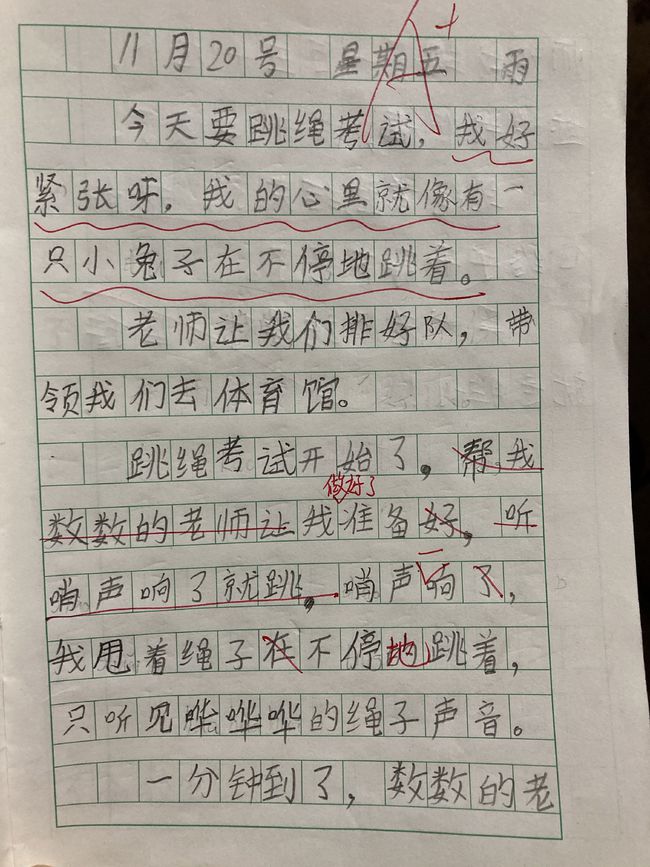 A+
11月20号 星期五 雨
今天要跳绳考试，我好
紧张呀，我的心里就像有一
只小兔子在不停地跳着。
老师让我们排好队，带
领我们去体育馆。
跳绳考试开始了，帮我
做好了
数数的老师让我准备好，听
一
哨声响了就跳。哨声响了，
我甩着绳子在不停地跳着，
只听见哗哗哗的绳子声音。
一分钟到了，数数的老